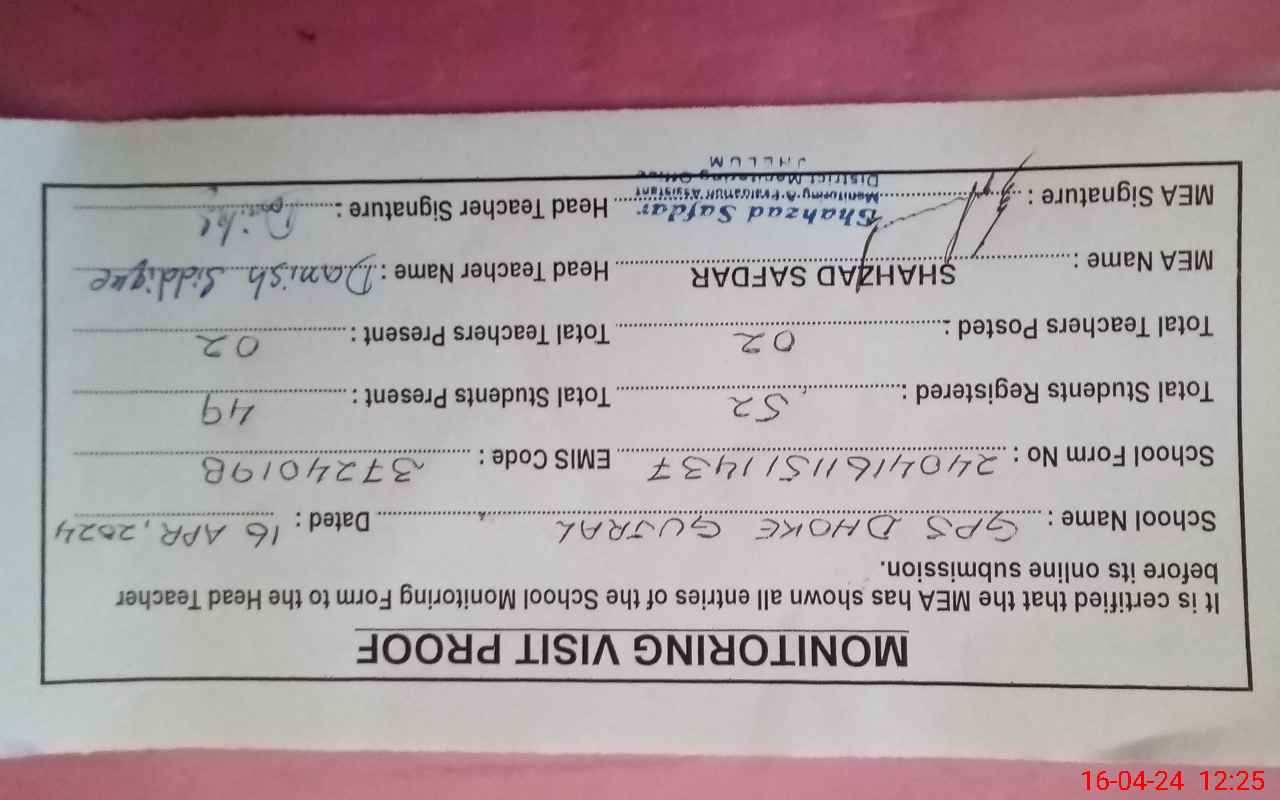 MONITORING VISIT PROOF
It is certified that the MEA has shown all entries of the School Monitoring Form to the Head Teacher
before its online submission.
School Name : GPS DHOKE GUJRAL Dated : 16 APR, 2024
School Form No : 240416115111437 EMIS Code : 37240198
Total Students Registered : 52 Total Students Present : 49
Total Teachers Posted : 02 Total Teachers Present : 02
MEA Name : SHAHZAD SAFDAR Head Teacher Name : Danish Siddique
MEA Signature : Head Teacher Signature :
Shahzad Safdar
Monitoring & Evaluation Assistant
District Monitoring Office
JHELUM
16-04-24 12:25